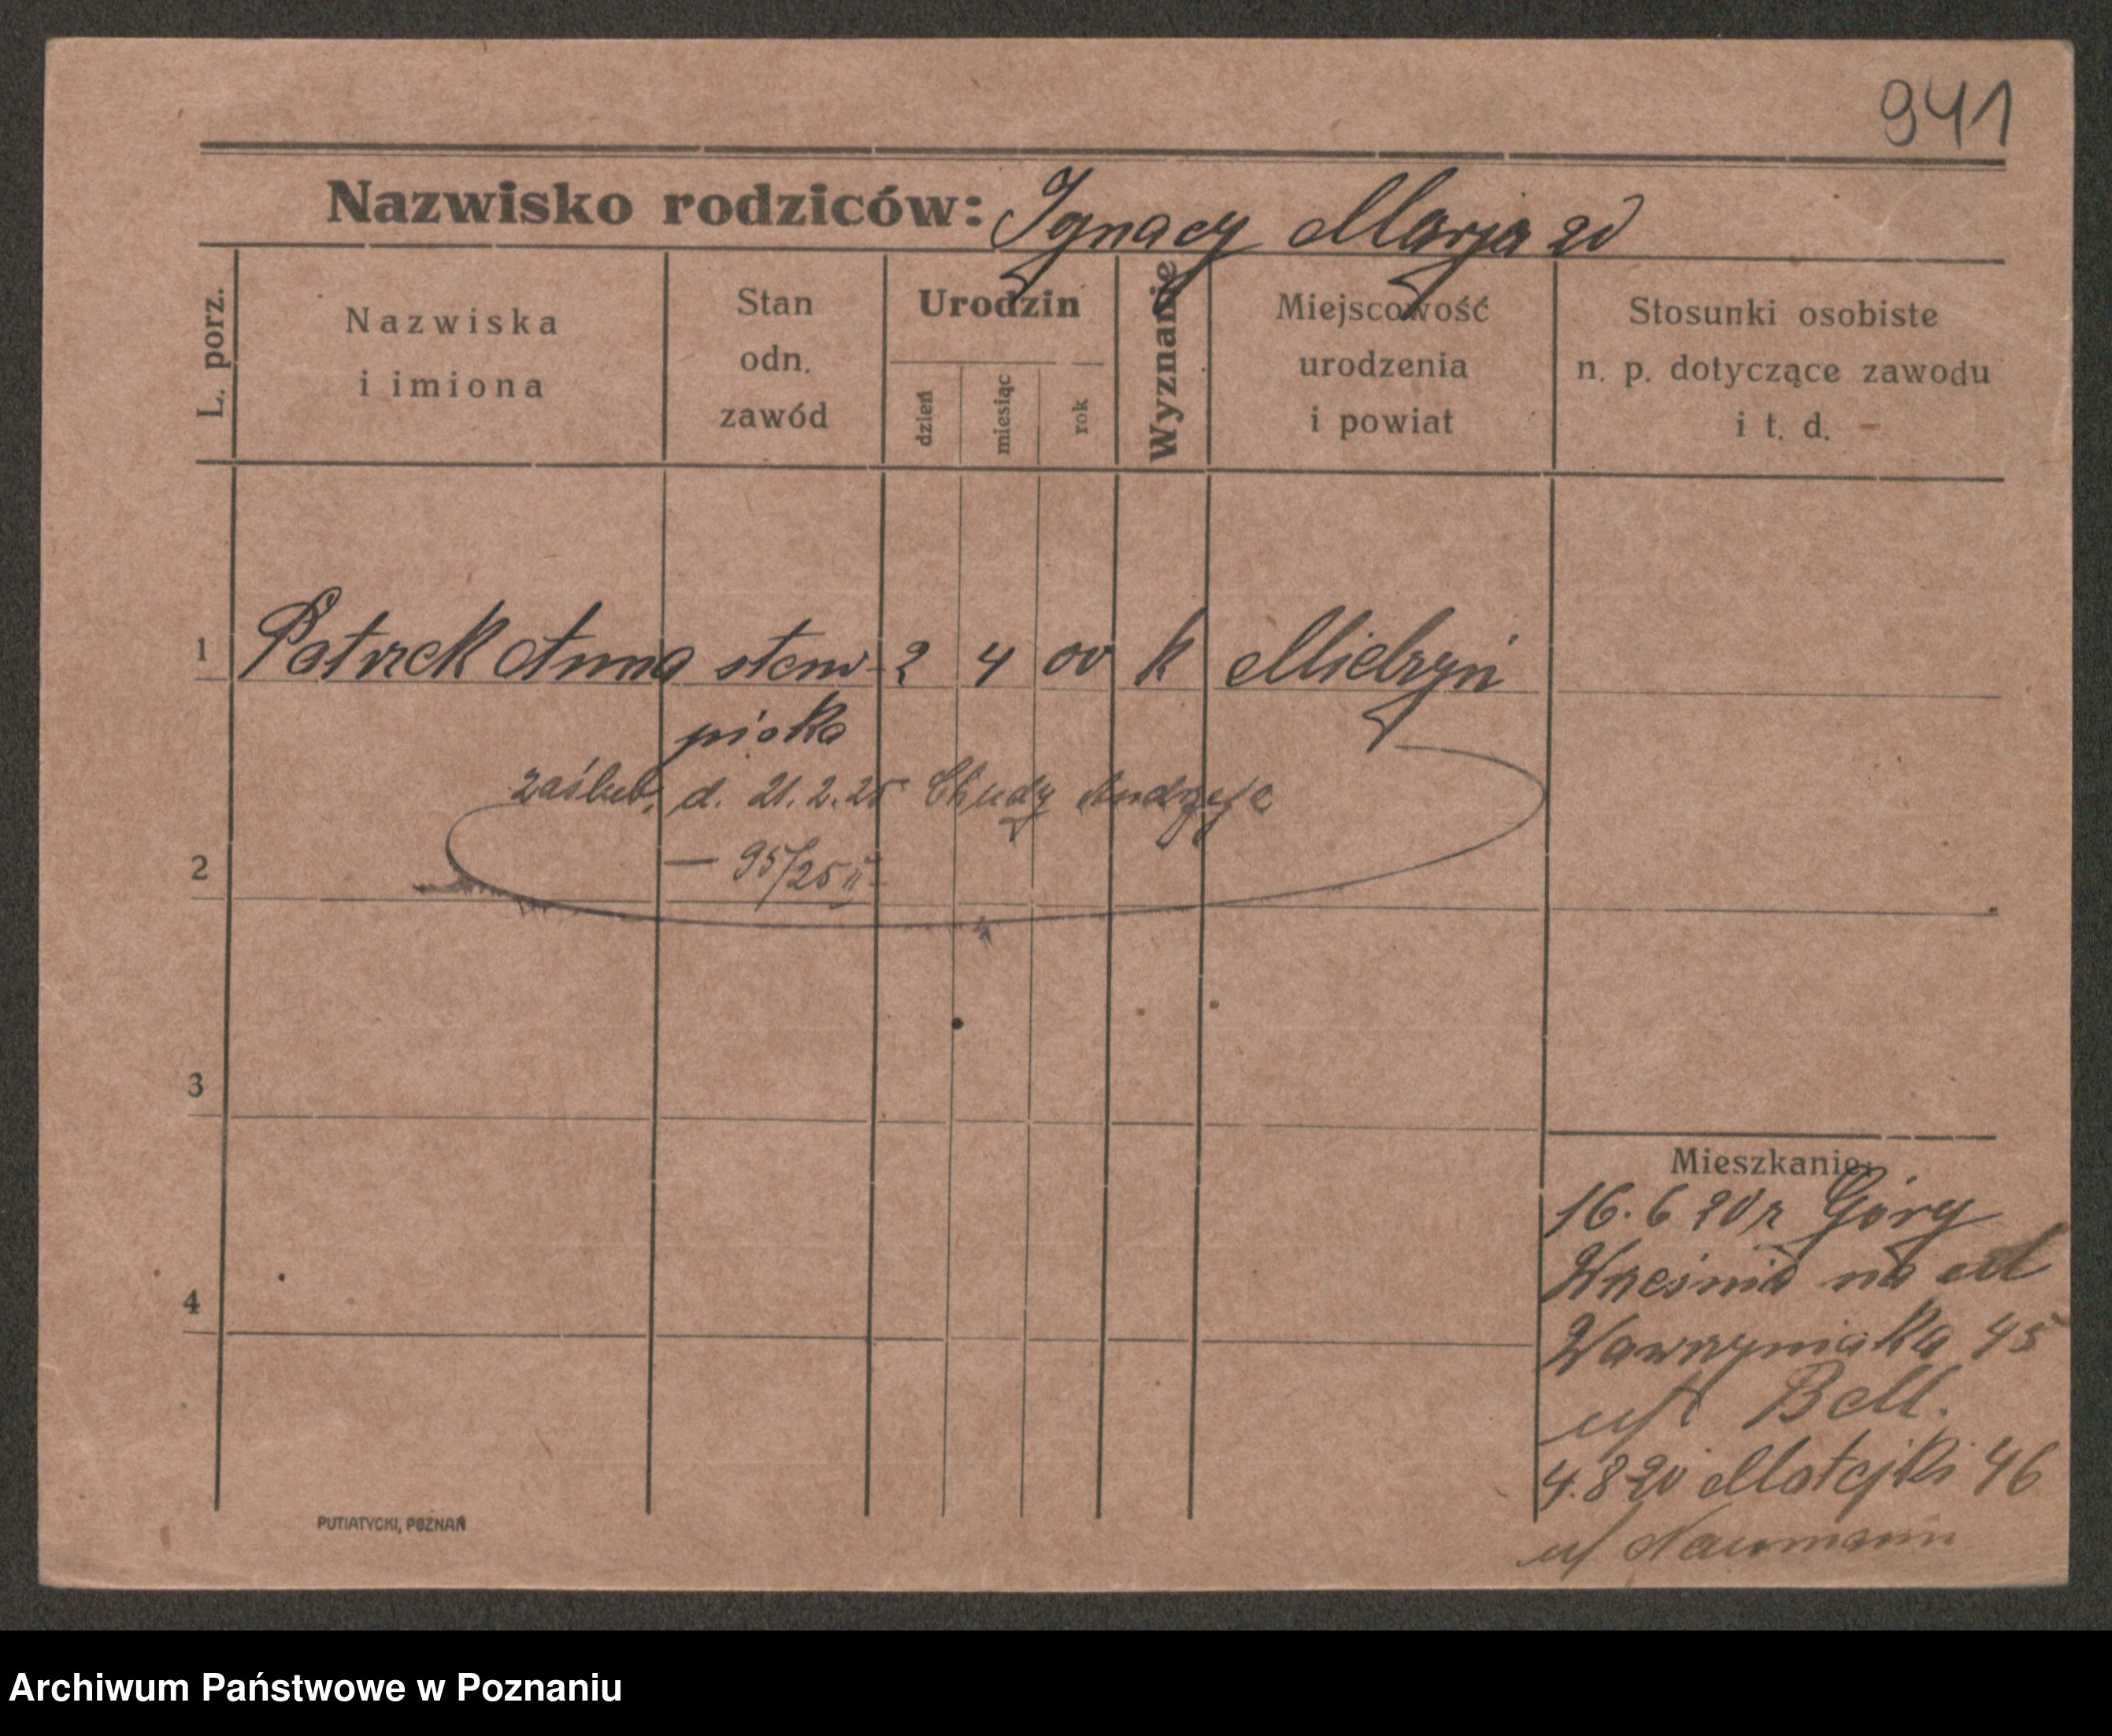 941
Nazwisko rodziców: Ignacy Marja
L. porz.
Nazwiska
i imiona
Stan
odn.
zawód
Urodzin
dzień
miesiąc
rok
Wyznanie
Miejscowość
urodzenia
i powiat
Stosunki osobiste
n. p. dotyczące zawodu
i t. d.
1 Patrzek Anna stem- 2 4 00 k Mielżyn
pistka
zaślub. d. 21.2.25 Chudy Andrzeje
2 — 95/25 II
3
4
Mieszkanie:
16.6 20 r Góry
Wreśnia na ul
Wawrzyniaka 45
u/ Bell.
4.8 20 Matejki 46
u/ Naumann
PUTIATYCKI, POZNAŃ
Archiwum Państwowe w Poznaniu